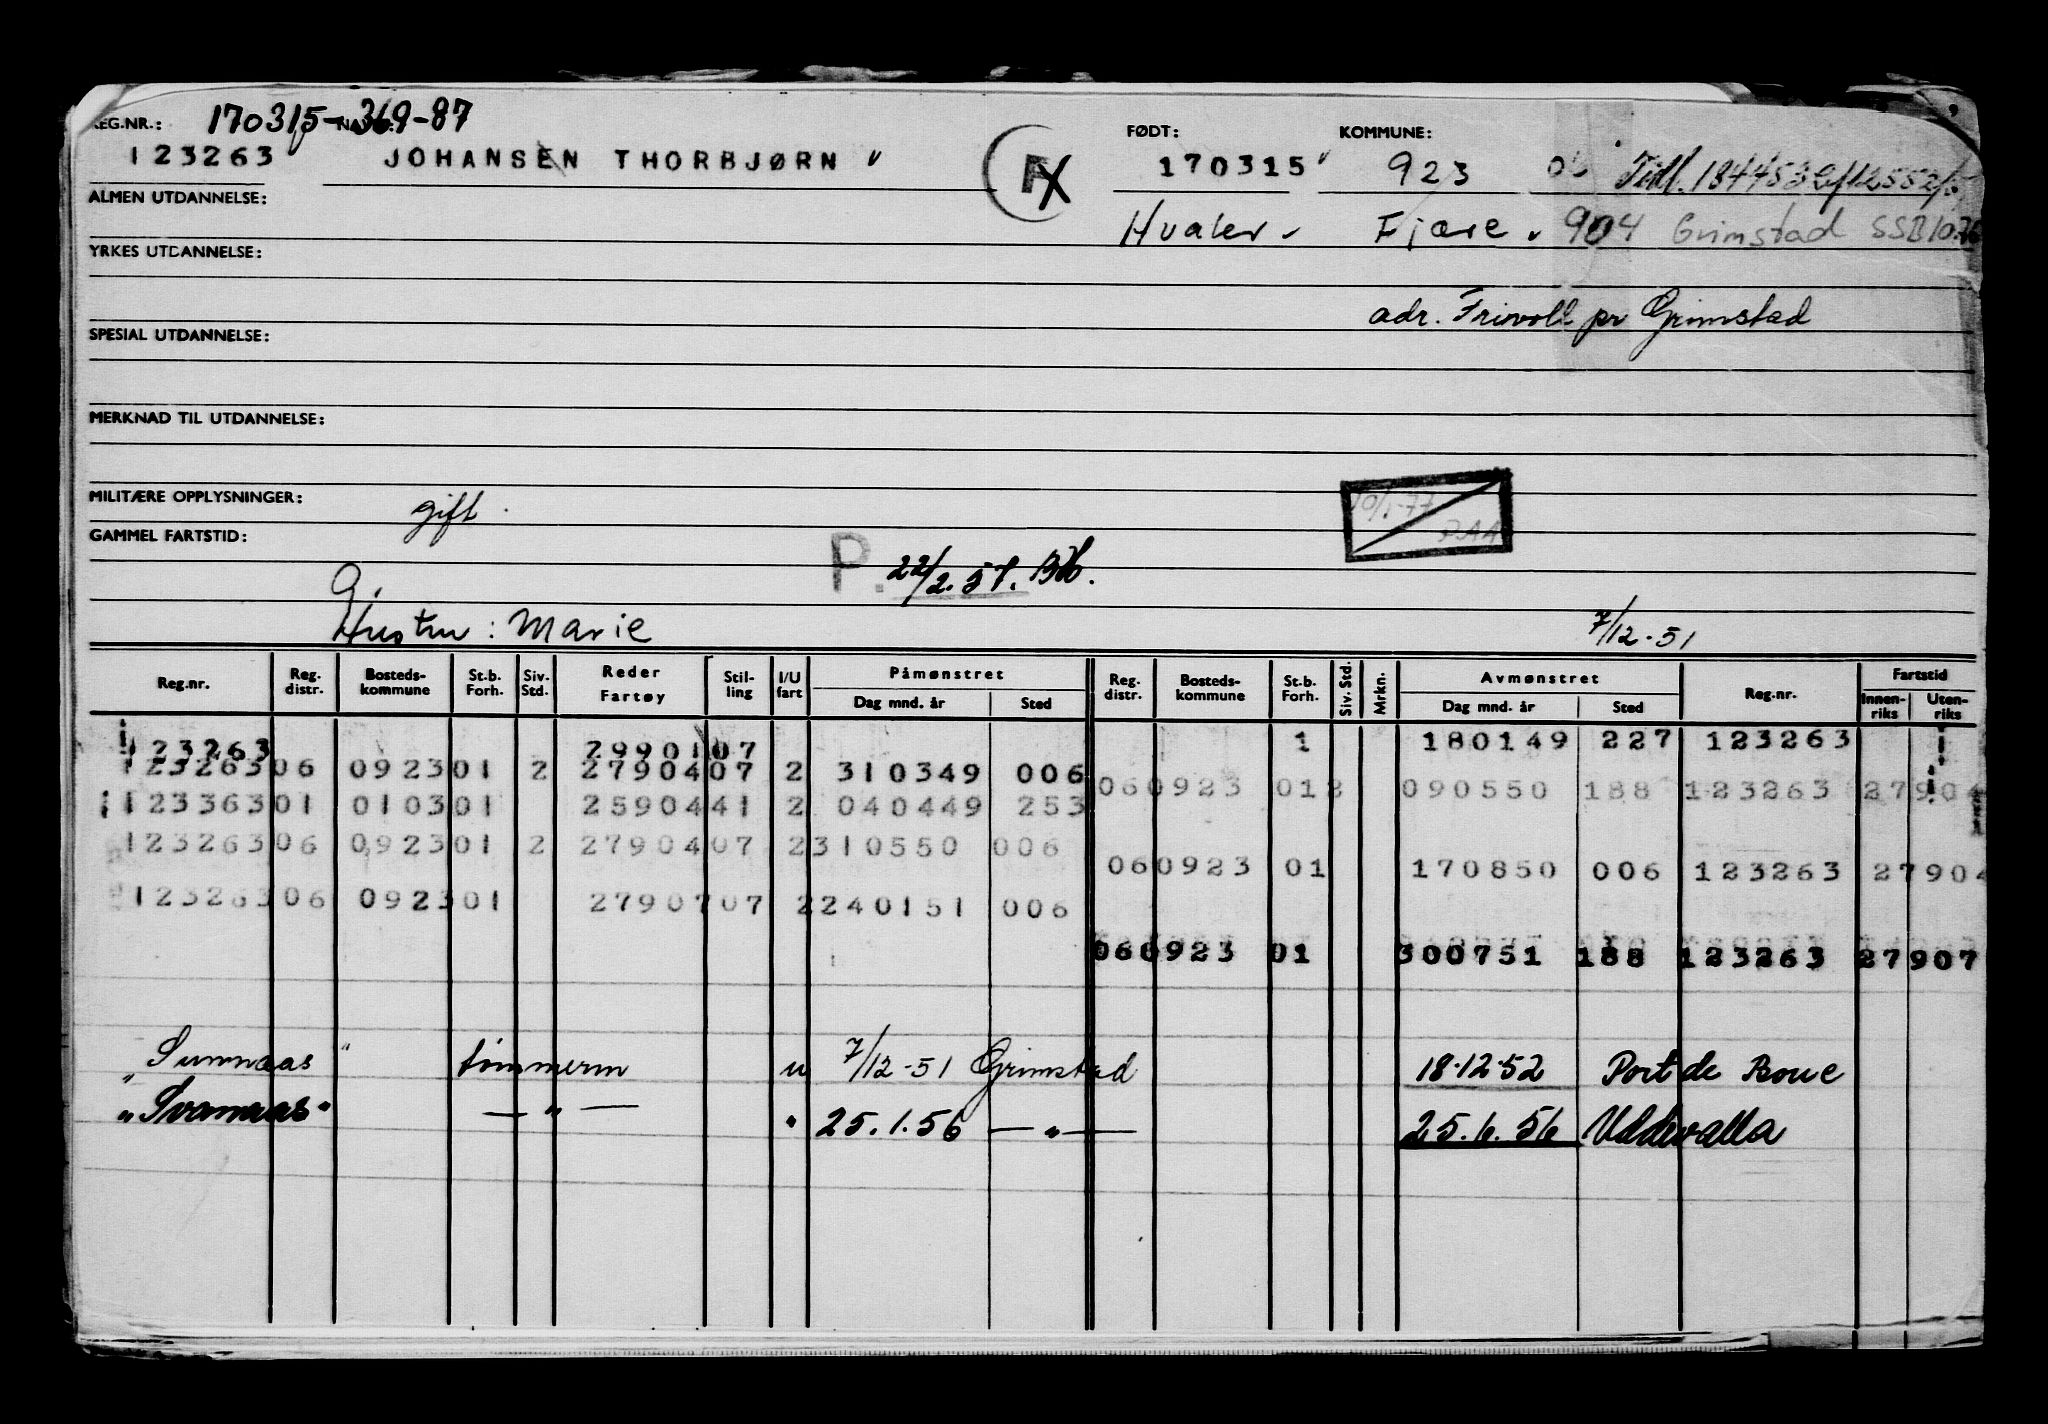 170315-369-87
REG.NR.: NAVN: FØDT: KOMMUNE:
123263 JOHANSEN THORBJØRN 170315 923 06 Tidl. 184453
ALMEN UTDANNELSE: Hvaler Fjære 904 Grimstad SSB 10.76
YRKES UTDANNELSE:
adr. Frivold pr Grimstad
SPESIAL UTDANNELSE:
MERKNAD TIL UTDANNELSE:
MILITÆRE OPPLYSNINGER: gift.
10/1-77
GAMMEL FARTSTID:
P. 22/2.57.
g.
Hustru: Marie 7/12-51
Reg.nr. Reg. distr. Bosteds- kommune St.b. Forh. Siv. Std. Reder Fartøy Stil- ling I/U fart Påmønstret Dag mnd. år Sted Reg. distr. Bosteds- kommune St.b. Forh. Siv. Std. Mrkn. Avmønstret Dag mnd. år Sted Reg.nr. Fartstid Innen- riks Uten- riks
123263 2990107 1 180149 227 123263
123263 06 0923 01 2 27904 07 2 310349 006
060923 012 090550 188 123263 27904
123363 01 0103 01 25904 41 2 040449 253
123263 06 0923 01 2 27904 07 2 310550 006
060923 01 170850 006 123263 27904
123263 06 0923 01 27907 07 2 240151 006
060923 01 300751 188 123263 27907
"Sunnaas" tømmerm u 7/12-51 Grimstad 18-12-52 Port de Bouc
"Svanaas" — " — " 25.1.56 — " — 25.6.56 Uddevalla